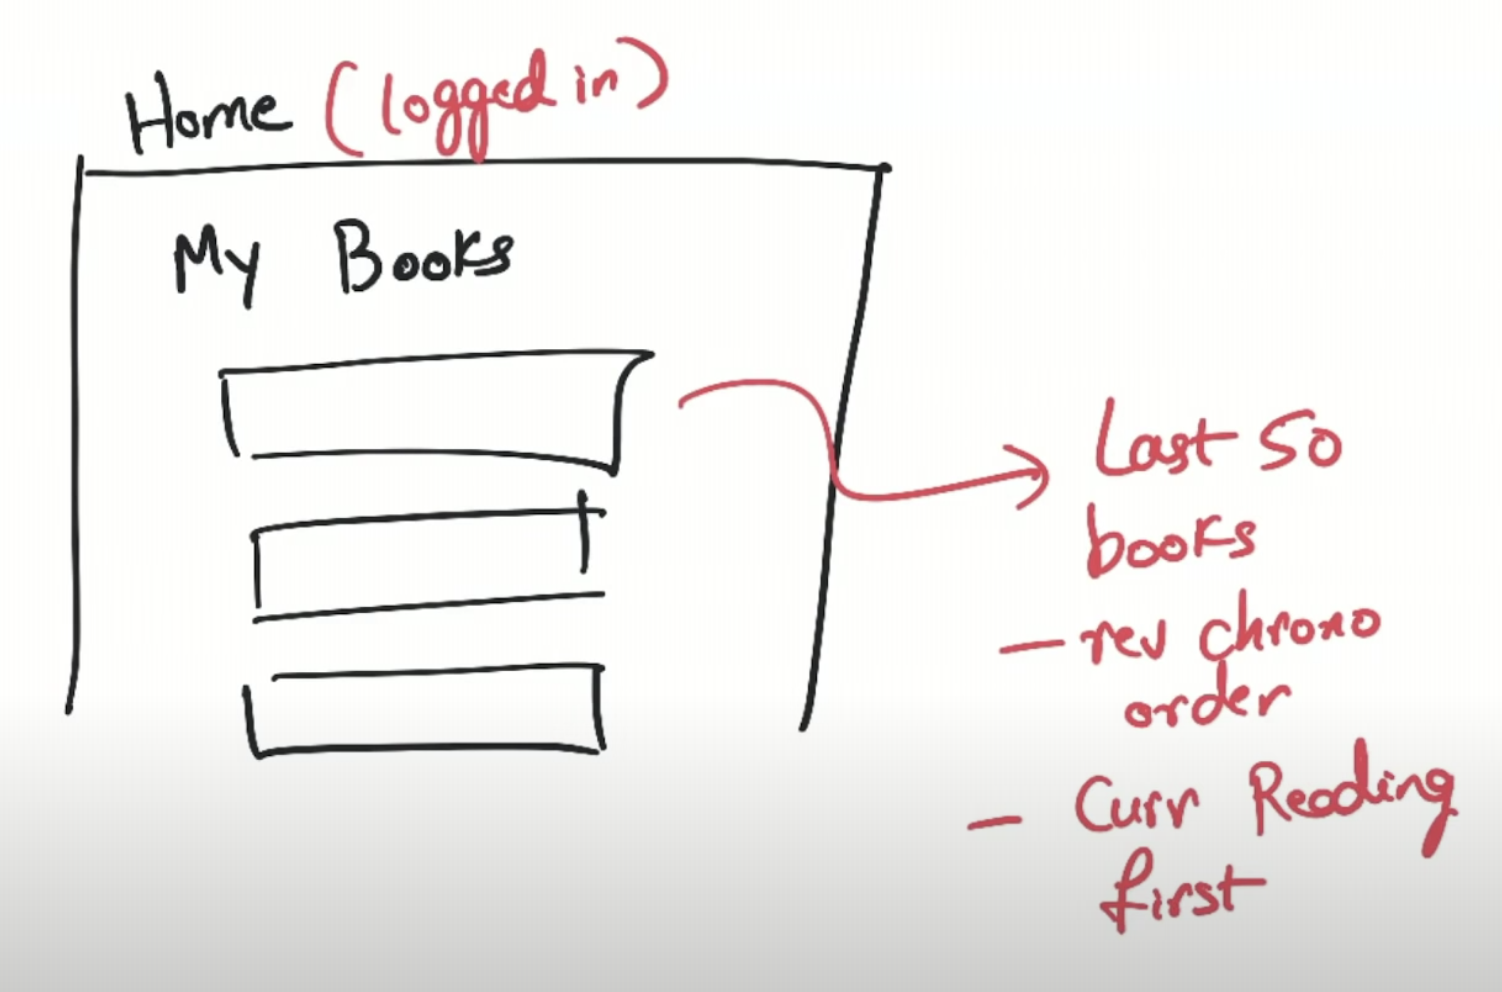 Home (logged in)
My Books
Last 50
books
- rev chrono
order
- Curr Reading
first